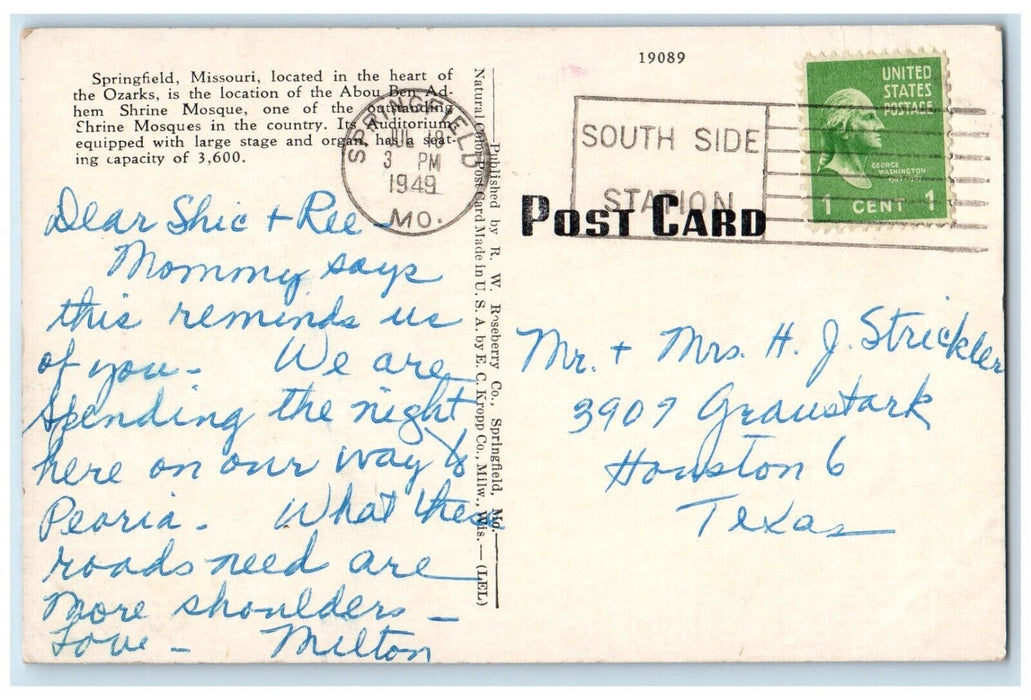 19089
Springfield, Missouri, located in the heart of
the Ozarks, is the location of the Abou Ben Ad-
hem Shrine Mosque, one of the outstanding
Shrine Mosques in the country. Its Auditorium
equipped with large stage and organ, has a seat-
ing capacity of 3,600.
SPRINGFIELD
JUL 18
3 PM
1949
MO.
SOUTH SIDE
STATION
UNITED
STATES
POSTAGE
GEORGE
WASHINGTON
1 CENT 1
POST CARD
Dear Shic + Ree -
Mommy says
this reminds us
of you - We are
spending the night
here on our way to
Peoria - What these
roads need are
more shoulders -
Love - Milton
Published by R. W. Roseberry Co., Springfield, Mo.
Natural Color Post Card Made in U. S. A. by E. C. Kropp Co., Milw., Wis. — (LEL)
Mr. + Mrs. H. J. Strickler
3907 Graustark
Houston 6
Texas